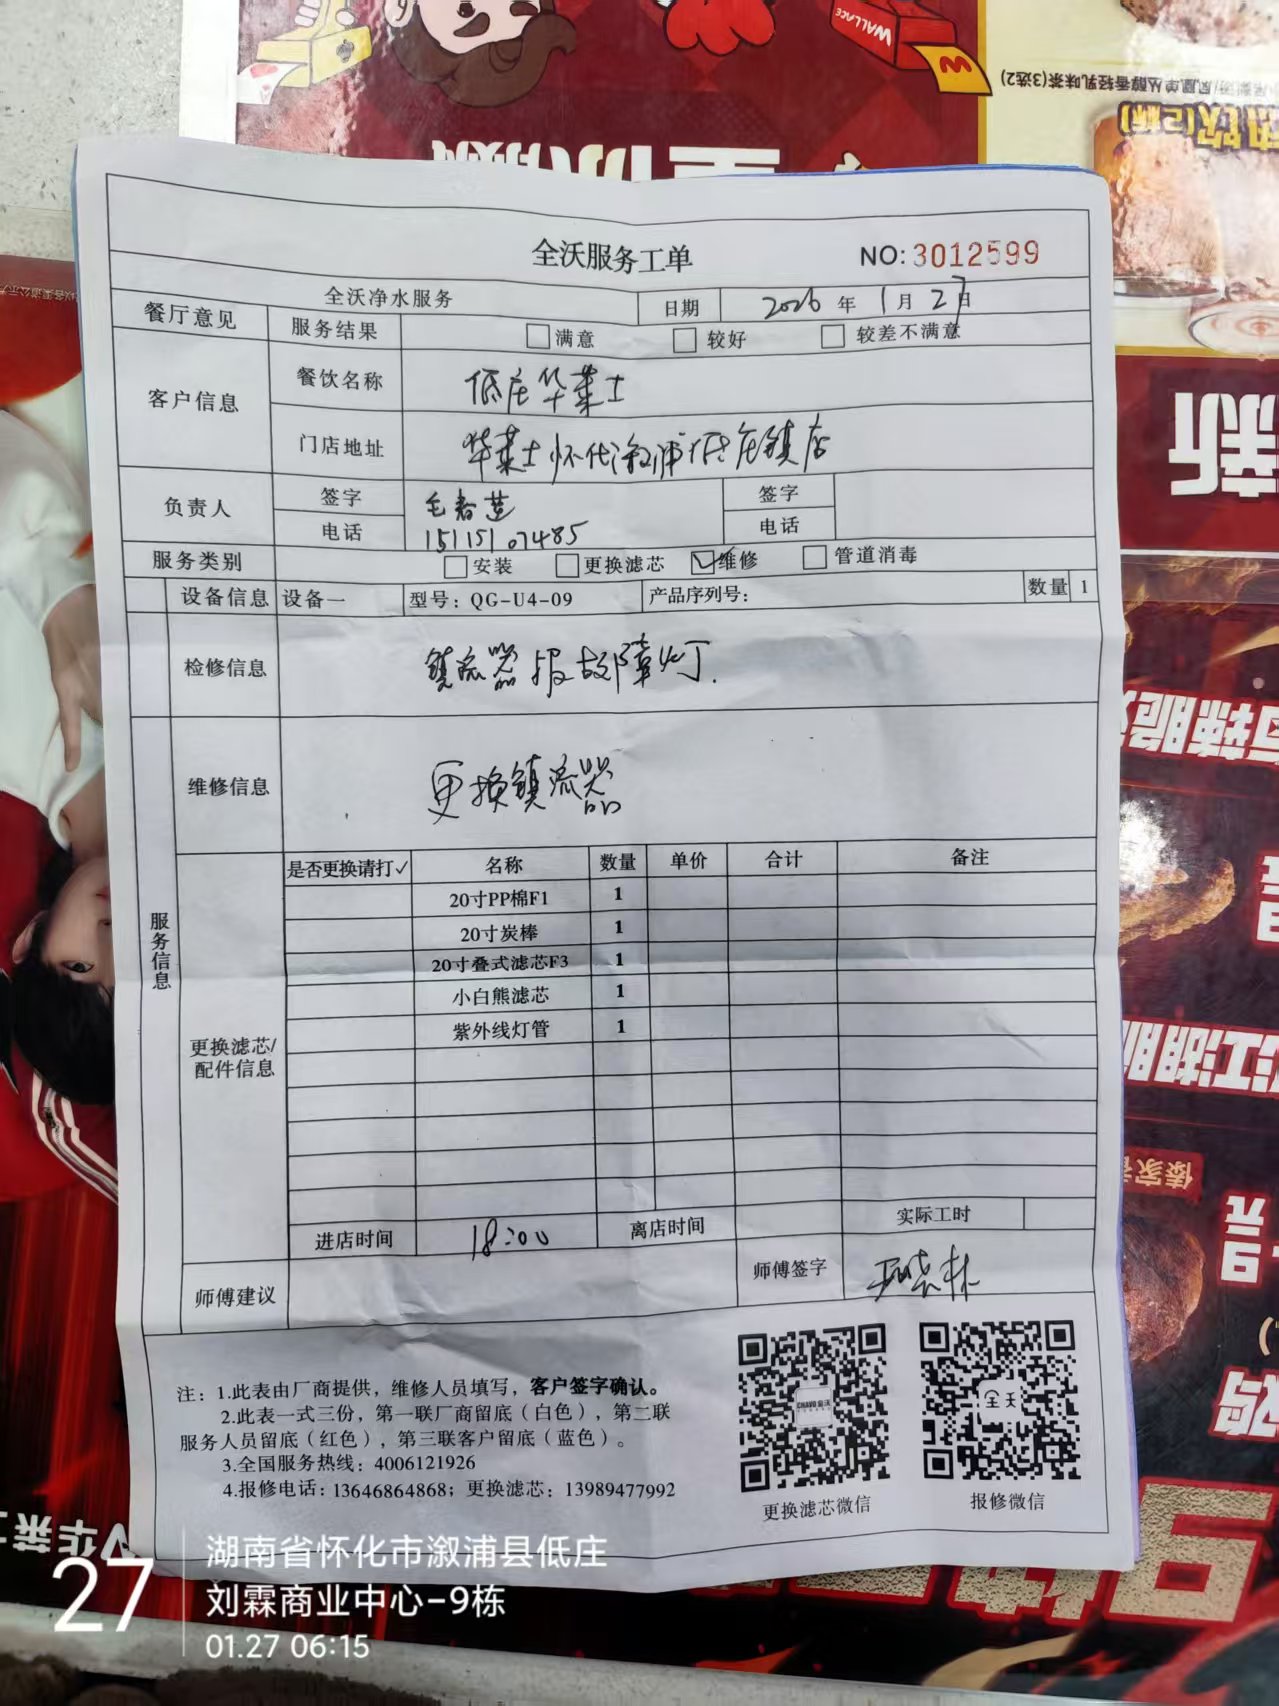 WALLACE
全沃服务工单
NO:3012599
全沃净水服务
日期
2026 年 1 月 27 日
餐厅意见
服务结果
满意
较好
较差不满意
客户信息
餐饮名称
低庄华莱士
门店地址
华莱士怀化溆浦低庄镇店
负责人
签字
毛春莲
签字
电话
15115107485
电话
服务类别
安装
更换滤芯
维修
管道消毒
设备信息
设备一
型号：QG-U4-09
产品序列号：
数量
1
检修信息
镇流器报故障灯.
维修信息
更换镇流器
服务信息
是否更换请打✓
名称
数量
单价
合计
备注
20寸PP棉F1
1
20寸炭棒
1
20寸叠式滤芯F3
1
小白熊滤芯
1
紫外线灯管
1
更换滤芯/
配件信息
进店时间
18:00
离店时间
实际工时
师傅建议
师傅签字
注：1.此表由厂商提供，维修人员填写，客户签字确认。
2.此表一式三份，第一联厂商留底（白色），第二联
服务人员留底（红色），第三联客户留底（蓝色）。
3.全国服务热线：4006121926
4.报修电话：13646864868；更换滤芯：13989477992
更换滤芯微信
报修微信
27
湖南省怀化市溆浦县低庄
刘霖商业中心-9栋
01.27 06:15